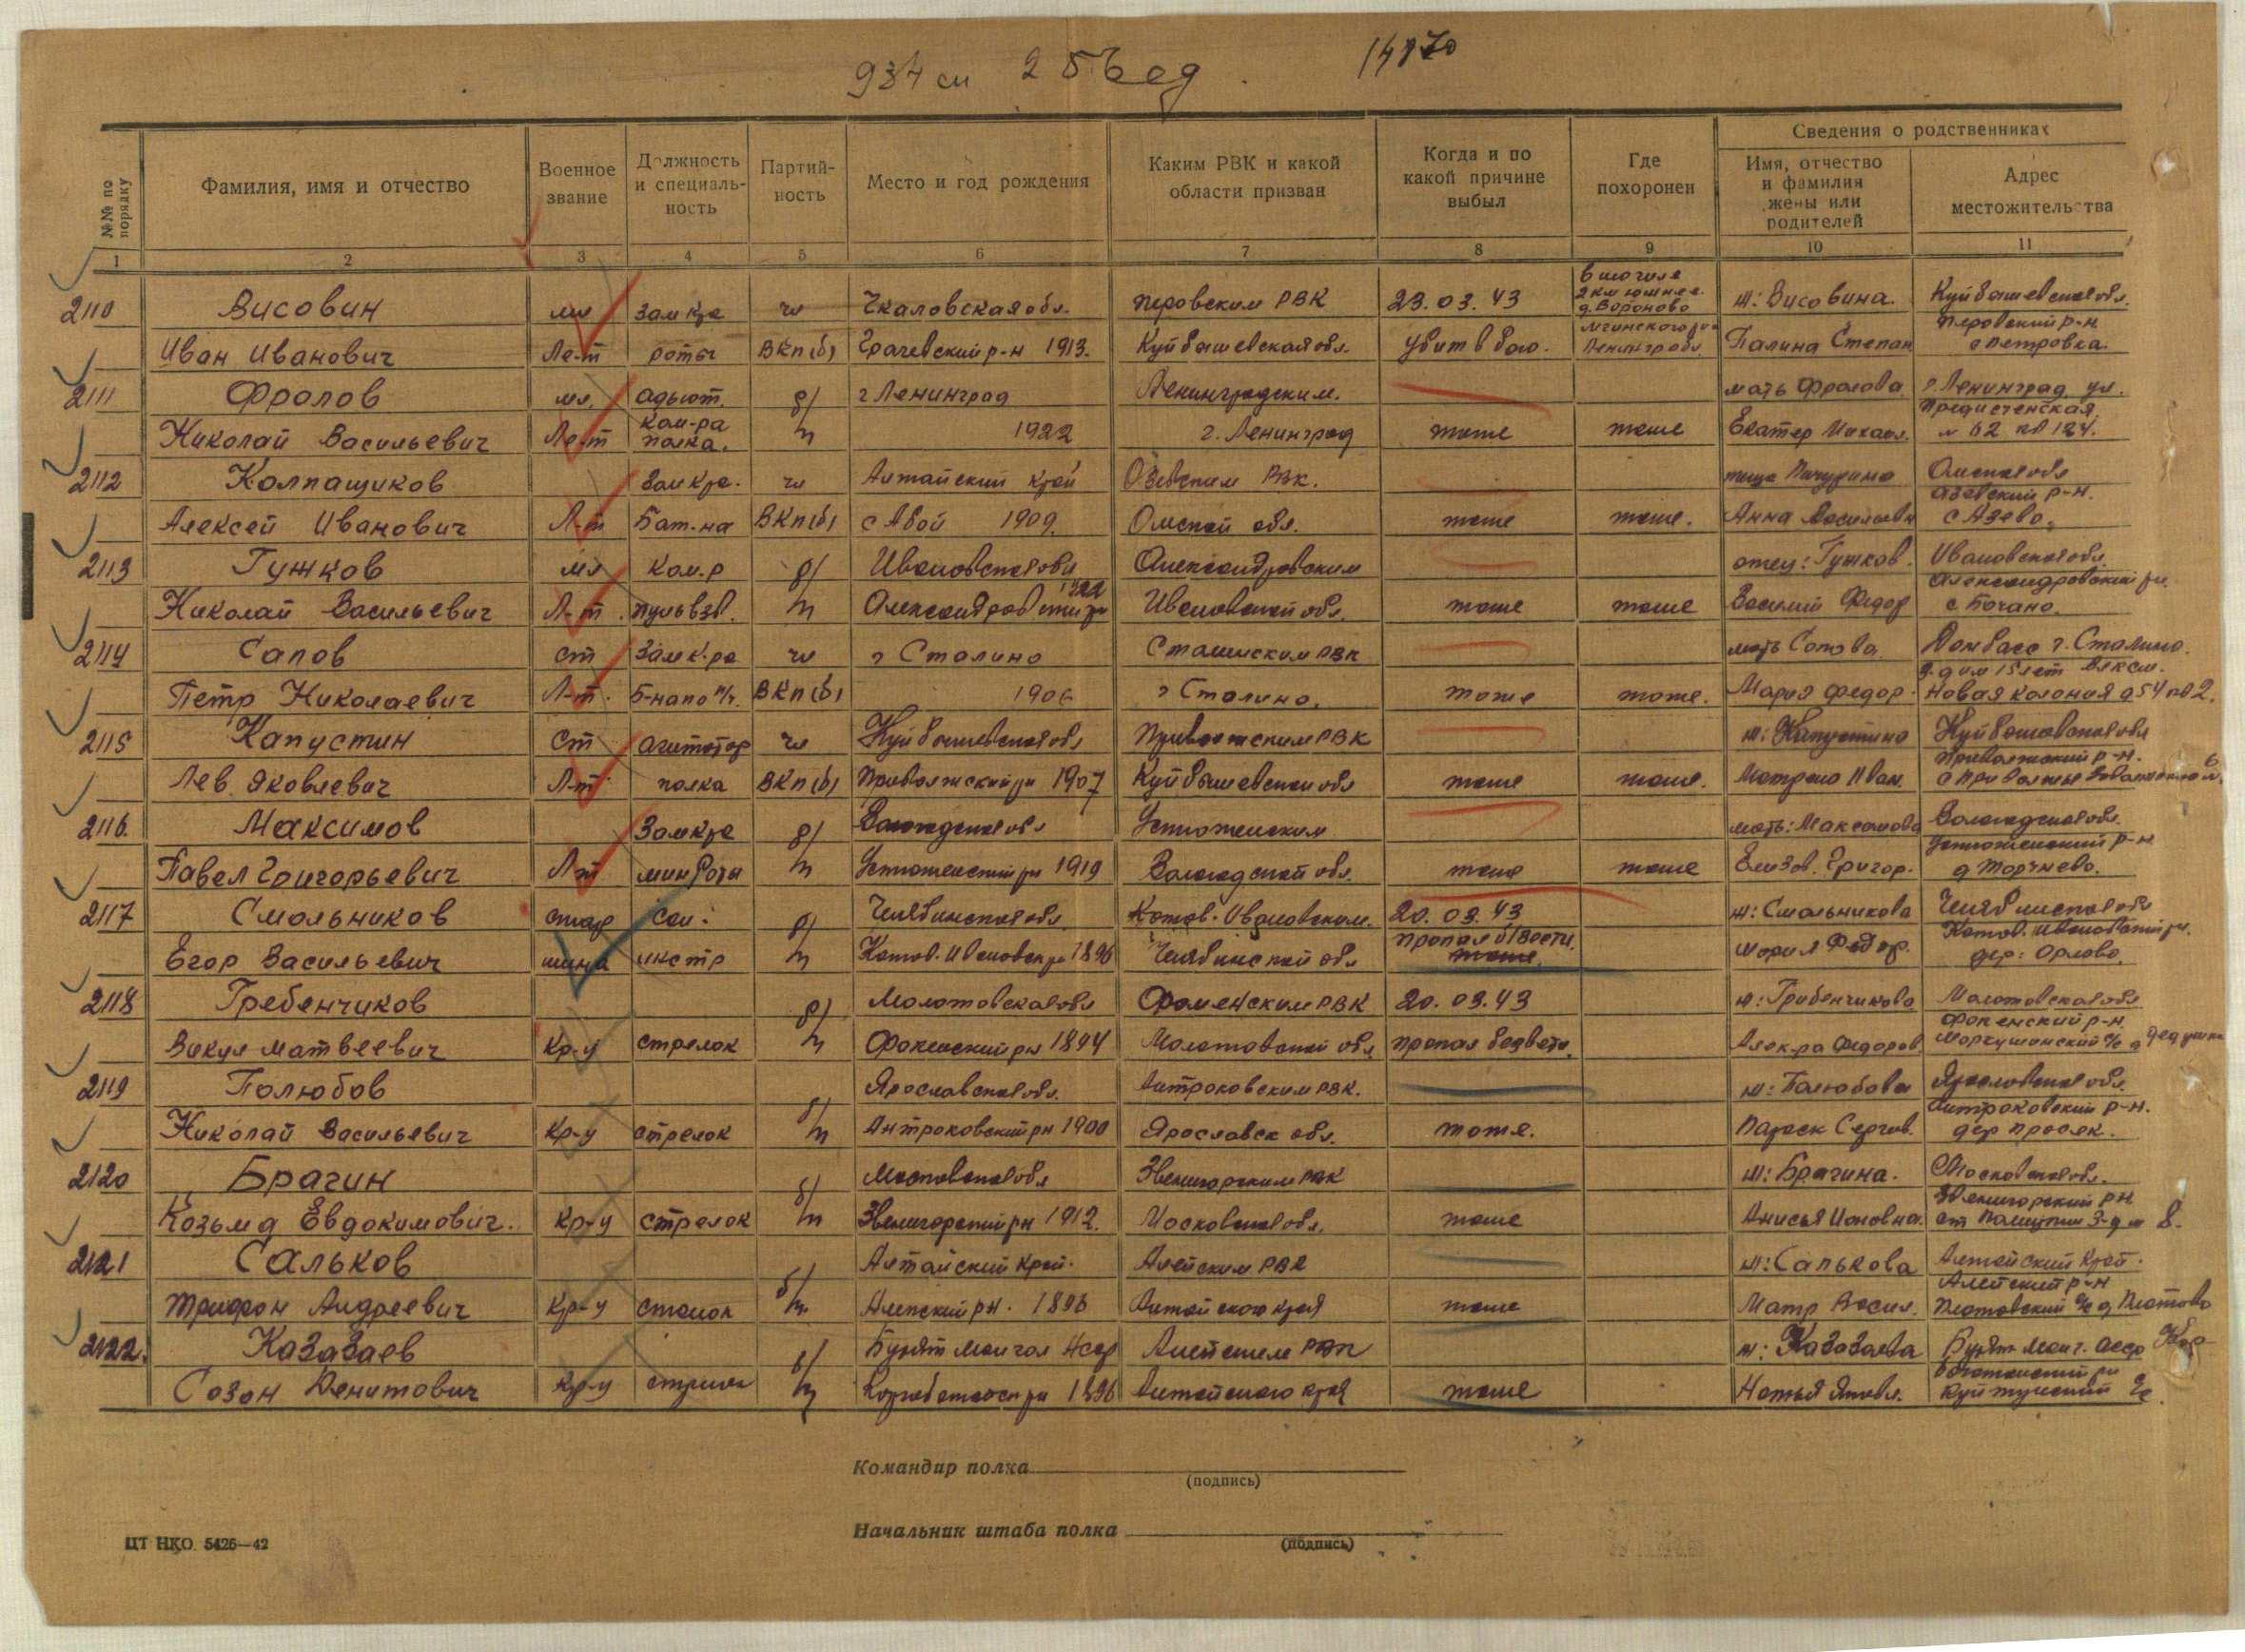 934 сп 2556 ед. 14170
№№ по порядку
Фамилия, имя и отчество
Военное звание
Должность и специаль-ность
Партий-ность
Место и год рождения
Каким РВК и какой области призван
Когда и по какой причине выбыл
Где похоронен
Сведения о родственниках
Имя, отчество и фамилия жены или родителей
Адрес местожительства
1 2 3 4 5 6 7 8 9 10 11
2110 Висовин мл Зам кра чл Чкаловская обл. Перовским РВК 23.03.43 в могиле 2 км южнее д. Вороново ж: Висовина. Куйбышевская обл.
Иван Иванович Ле-т роты ВКП(б) Грачевский р-н 1913. Куйбышевская обл. убит в бою. Мгинского р-н Ленингр обл. Палина Степан Перовский р-н с Петровка.
2111 Фролов мл. адъют. б/ г Ленинград Ленинградским. мать Фролова г Ленинград ул.
Николай Васильевич Ле-т ком-ра полка. п 1922 г. Ленинград тоже тоже Екатер Михаил. № 62 кв 124.
2112 Колпащиков Зам кра. чл Алтайский край Азовским РВК. теща Омская обл
Алексей Иванович Л-т Бат-на ВКП(б) с Абай 1909. Омской обл. тоже тоже. Анна Васильевн Азовский р-н. с Азово.
2113 Гужков мл ком-р б/ Ивановская обл Александровским отец: Гужков. Ивановская обл.
Николай Васильевич Л-т. пульвзв. п Александровский рн 1922 Ивановской обл. тоже тоже Василий Федор Александровский рн.
2114 Сапов ст Зам к-ра чл г Сталино Сталинским РВК мать Сапова Донбасс г. Сталино.
Петр Николаевич Л-т. Б-на по п/ч. ВКП(б) 1906 г Сталино. тоже тоже. Мария Федор. 15 лет ВЛКСМ. Новая колония д 54 кв 2.
2115 Капустин ст агитатор чл Куйбышевская обл Приволжским РВК ж: Капустина Куйбышевская обл
Лев Яковлевич Л-т полка ВКП(б) Приволжский рн 1907 Куйбышевской обл тоже тоже. Матрена Иван. Приволжский р-н.
2116. Максимов Зам кра б/ Вологодская обл Устюженским мать: Максимова Вологодская обл.
Павел Григорьевич Л-т мин Роты п Устюженский рн 1919 Вологодской обл. тоже тоже Елизов. Григор. Устюженский р-н
2117 Смольников стар сан. б/ Челябинская обл. Катав-Ивановским. 20.03.43 ж: Смольникова Челябинская обл
Егор Васильевич шина инстр п Катав-Ивановск рн 1896 Челябинской обл пропал б/вести. тоже. Мария Федор. Катав. Ивановский рн. дер: Орлово.
2118 Гребенчиков б/ Молотовская обл Фокинским РВК 20.03.43 ж: Гребенчикова Молотовская обл
Викул Матвеевич Кр-ц стрелок п Фокинский рн 1894 Молотовской обл. пропал безвести. Алек-ра Федоров. Фокинский р-н
2119 Полюбов б/ Ярославская обл. Антроповским РВК. ж: Полюбова Ярославская обл.
Николай Васильевич Кр-ц стрелок п Антроповский рн 1900 Ярославск обл. тоже. Параск Сергов. Антроповский р-н. дер Просек.
2120 Брагин б/ Московская обл Звенигорским РВК ж: Брагина. Московская обл.
Козьма Евдокимович. Кр-ц стрелок п Звенигорский рн 1912. Московской обл. тоже Анисья Ионовна. Звенигорский рн
2121 Сальков б/ Алтайский край. Алейским РВК ж: Салькова Алтайский край.
Трифон Андреевич Кр-ц стрелок п Алейский рн. 1896 Алтайского края тоже Матр Васил. Алейский р-н Плотовский с/с д Плотово
2122. Казазаев б/ Бурят Монгол АССР Алейским РВК ж: Казазаева Бурят Монг. АССР
Созон Кр-ц стрелок п 1896 Алтайского края тоже Куйтунский с/с
Командир полка
(подпись)
Начальник штаба полка
(подпись)
ЦТ НКО. 5426—42